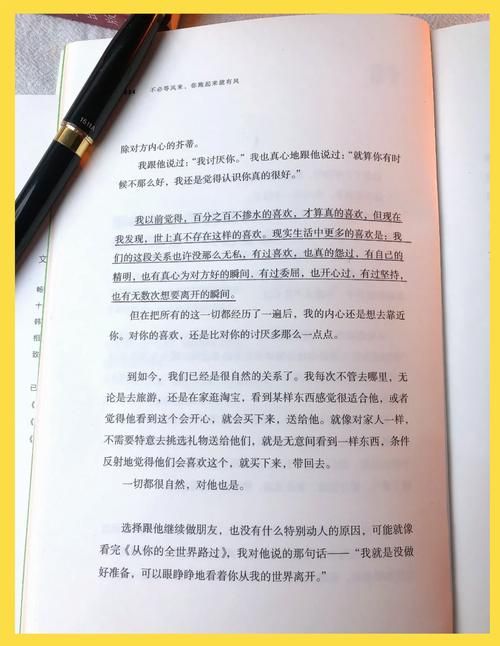 不必等风来，你跑起来就有风
除对方内心的芥蒂。
我跟他说过：“我讨厌你。”我也真心地跟他说过：“就算你有时
候不那么好，我还是觉得认识你真的很好。”
我以前觉得，百分之百不掺水的喜欢，才算真的喜欢，但现在
我发现，世上真不存在这样的喜欢。现实生活中更多的喜欢是：我
们的这段关系也许没那么无私，有过喜欢，也真的怨过，有自己的
精明，也有真心为对方好的瞬间，有过委屈，也开心过，有过坚持，
也有无数次想要离开的瞬间。
但在把所有的这一切都经历了一遍后，我的内心还是想去靠近
你。对你的喜欢，还是比对你的讨厌多那么一点点。
到如今，我们已经是很自然的关系了。我每次不管去哪里，无
论是去旅游，还是在家逛淘宝，看到某样东西感觉很适合他，或者
觉得他看到这个会开心，就会买下来，送给他。就像对家人一样，
不需要特意去挑选礼物送给他们，就是无意间看到一样东西，条件
反射地觉得他们会喜欢这个，就买下来，带回去。
一切都很自然，对他也是。
选择跟他继续做朋友，也没有什么特别动人的原因，可能就像
看完《从你的全世界路过》，我对他说的那句话——“我就是没做
好准备，可以眼睁睁地看着你从我的世界离开。”
1611A
文
畅
十
韩
相
致
已
《
《